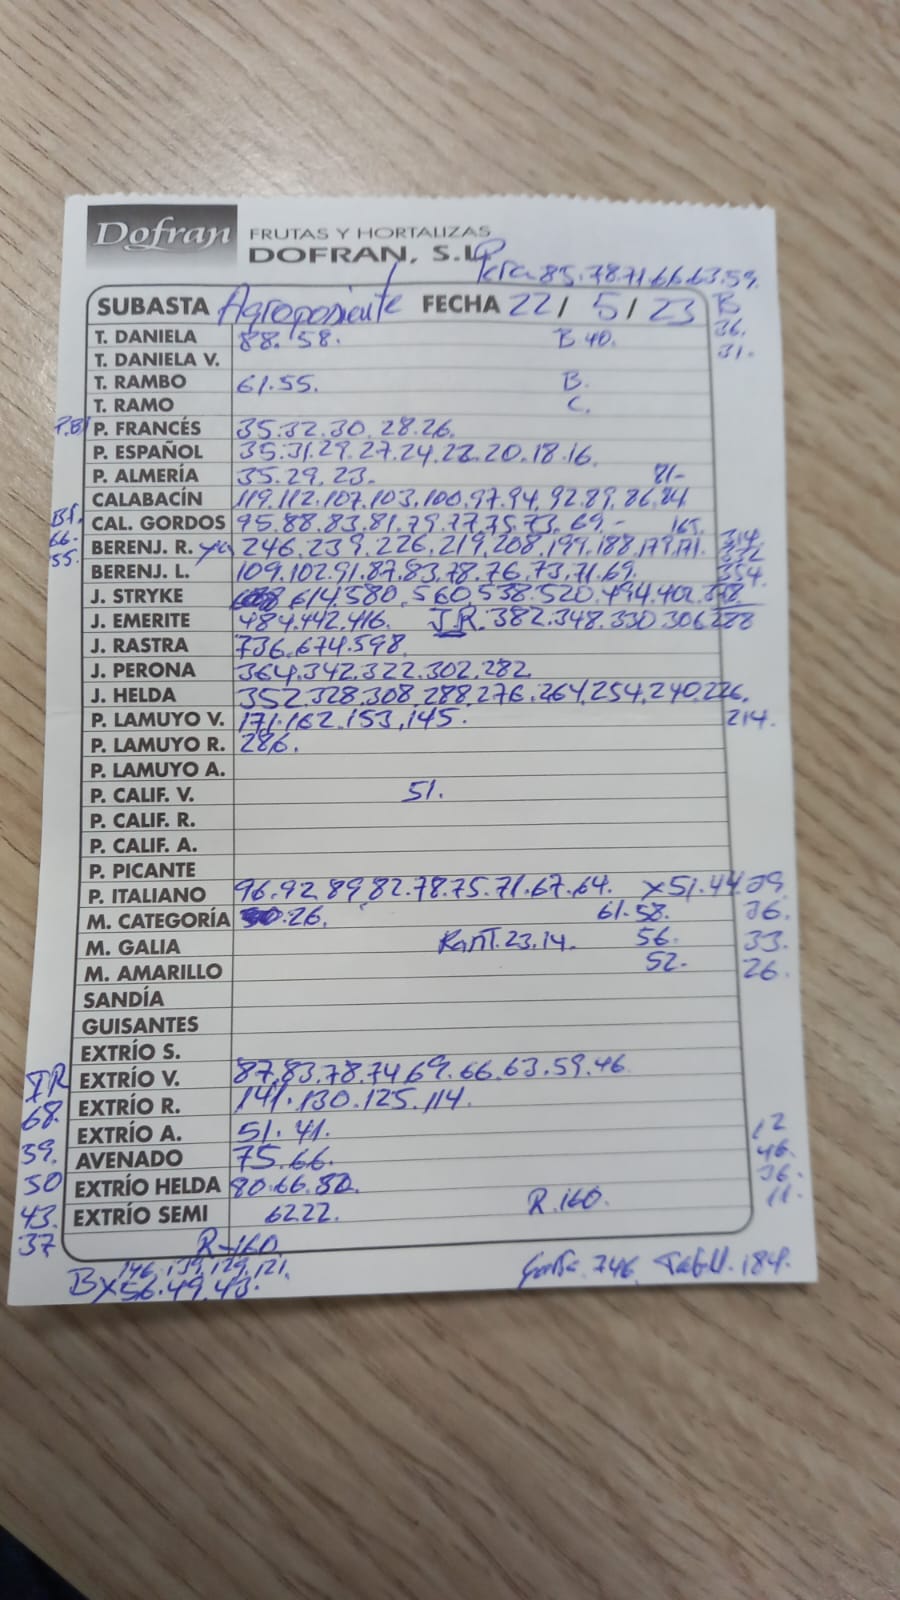 Dofran FRUTAS Y HORTALIZAS
DOFRAN, S.L.
Pera 85.78.71.66.63.59.
SUBASTA Agroponiente FECHA 22/5/23 B
36.
T. DANIELA 88.58. B 40. 31.
T. DANIELA V.
T. RAMBO 61.55. B.
T. RAMO C.
P. FRANCÉS 35.32.30.28.26.
P. ESPAÑOL 35.31.29.27.24.22.20.18.16.
P. ALMERÍA 35.29.23. 81-
CALABACÍN 119.112.107.103.100.97.94.92.89.86.84
CAL. GORDOS 95.88.83.81.79.77.75.73.69.- 165.
66. BERENJ. R. 246.239.226.219.208.199.188.179.171. 314.
55. 332
BERENJ. L. 109.102.91.87.83.78.76.73.71.69. 354.
J. STRYKE 614.580.560.538.520.494.402.378
J. EMERITE 484.442.416. J.R. 382.348.330.306.288
J. RASTRA 736.674.598.
J. PERONA 364.342.322.302.282.
J. HELDA 352.328.308.288.276.264.254.240.226.
P. LAMUYO V. 171.162.153.145. 214.
P. LAMUYO R. 286.
P. LAMUYO A.
P. CALIF. V. 51.
P. CALIF. R.
P. CALIF. A.
P. PICANTE
P. ITALIANO 96.92.89.82.78.75.71.67.64. x51.44.39.
M. CATEGORÍA 26. 61.58. 36.
M. GALIA Kant.23.14. 56. 33.
M. AMARILLO 52. 26.
SANDÍA
GUISANTES
EXTRÍO S.
EXTRÍO V. 87.83.78.74.69.66.63.59.46
68. EXTRÍO R. 141.130.125.114.
EXTRÍO A. 51.41. 12
39. AVENADO 75.66. 46.
50 EXTRÍO HELDA 80.66.80. 36.
11.
43. EXTRÍO SEMI 62 22. R.160.
37 R-160
146.139.129.121.
Bx56.49.43. 746 184.